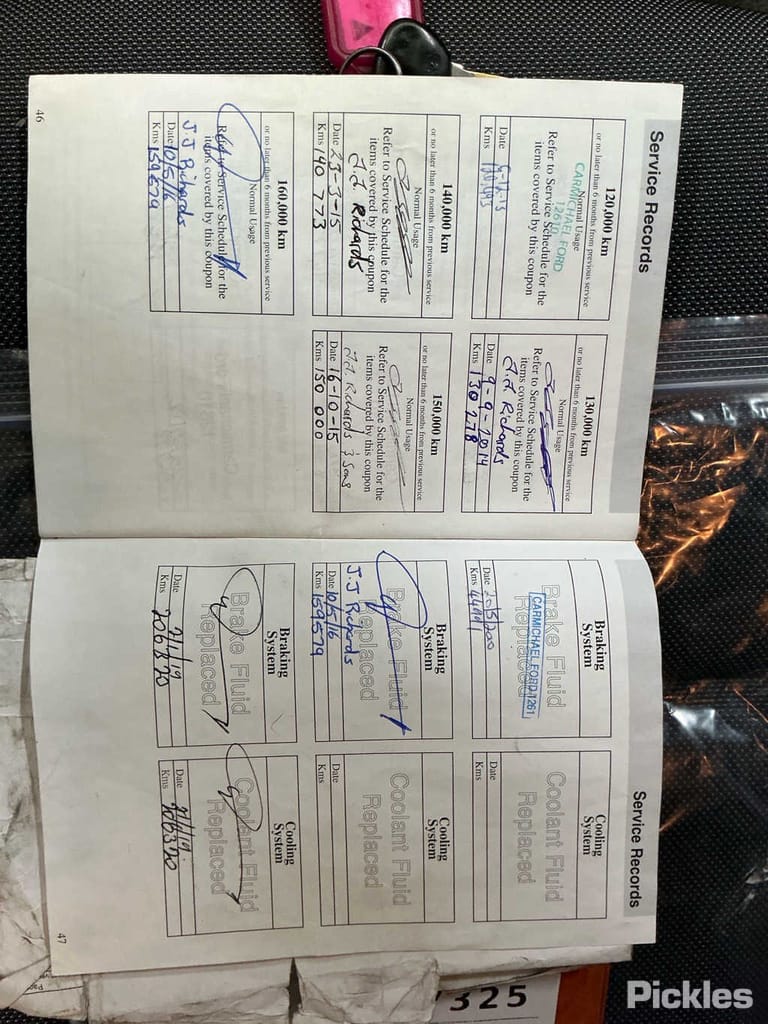 Service Records
120,000 km
or no later than 6 months from previous service
Normal Usage
CARMICHAEL FORD
12610
Refer to Service Schedule for the
items covered by this coupon
Date
Kms
130,000 km
or no later than 6 months from previous service
Normal Usage
Refer to Service Schedule for the
items covered by this coupon
J.J Richards
Date 9-9-2014
Kms 130 278
140,000 km
or no later than 6 months from previous service
Normal Usage
Refer to Service Schedule for the
items covered by this coupon
J.J Richards
Date 23-3-15
Kms 140 773
150,000 km
or no later than 6 months from previous service
Normal Usage
Refer to Service Schedule for the
items covered by this coupon
J.J. Richards & Sons
Date 16-10-15
Kms 150 000
160,000 km
or no later than 6 months from previous service
Normal Usage
Refer to Service Schedule for the
items covered by this coupon
J.J Richards
Date 10/5/16
Kms 159579
46
Service Records
Braking
System
Brake Fluid
Replaced
CARMICHAEL FORD 1261
Date
Kms
Cooling
System
Coolant Fluid
Replaced
Date
Kms
Braking
System
Brake Fluid
Replaced
J.J Richards
Date 10/5/16
Kms 159579
Cooling
System
Coolant Fluid
Replaced
Date
Kms
Braking
System
Brake Fluid
Replaced
Date
Kms 206320
Cooling
System
Coolant Fluid
Replaced
Date
Kms
47
7325
Pickles